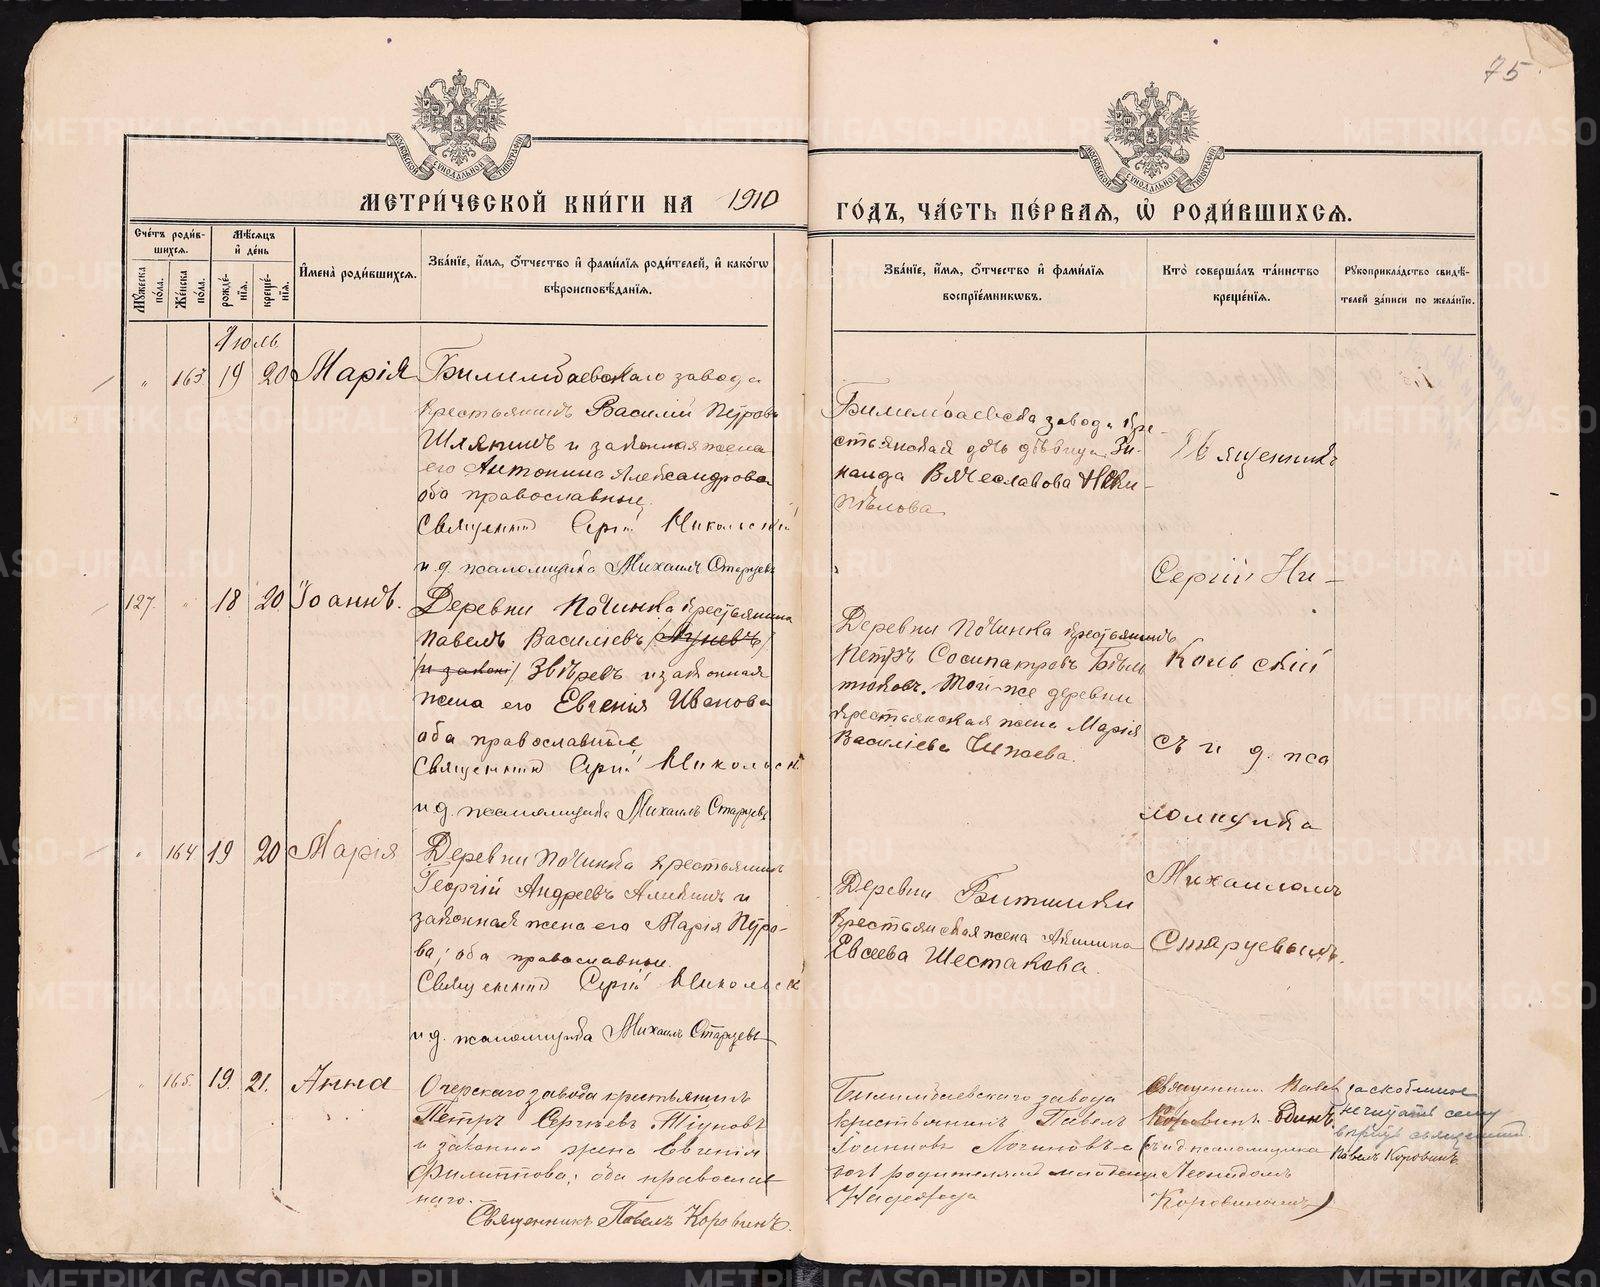 75
МЕТРИ́ЧЕСКОЙ КНИ́ГИ НА 1910
ГО́ДЪ, ЧА́СТЬ ПЕ́РВАЯ, Ѡ РОДИ́ВШИХСЯ.
Сче́тъ роди́в-
шихся.
Мꙋ́жеска по́ла.
Же́нска по́ла.
Мѣ́сяцъ
и̑ де́нь
рожде́-
нїя.
креще́-
нїя.
И҆мена̀ роди́вшихся.
Зва́нїе, и҆́мя, ѻ҆́тчество и҆ фами́лїя роди́телей, и҆ како́гѡ
вѣроисповѣ́данїя.
Зва́нїе, и҆́мя, ѻ҆́тчество и҆ фами́лїя
воспрїе́мникѡвъ.
Кто̀ соверша́лъ та́инство
креще́нїя.
Рꙋкоприкла́дство свидѣ́-
телей за́писи по жела́нїю.
Іюль
" 163 19 20 Марія
Билимбаевскаго завода
крестьянинъ Василій Петровъ
Шляпинъ и законная жена
его Антонина Александрова
оба православные
Священникъ Сергій Никольскій
и д. псаломщика Михаилъ Старцевъ
Билимбаевска завода кре-
стьянская дочь дѣвица Зи-
наида Вячеславова Неки-
пѣлова
Священникъ
Сергій Ни-
кольскій
съ и д. пса
ломщика
Михаиломъ
Старцевымъ.
127. " 18 20 Іоаннъ.
Деревни Починка крестьянинъ
Павелъ Василіевъ /Муневъ/
/и закон/ Звѣревъ и законная
жена его Евгенія Иванова
оба православные
Священникъ Сергій Никольскій
и д. псаломщика Михаилъ Старцевъ
Деревни Починка крестьянинъ
Петръ Сосипатровъ Бѣль
тюковъ. Той-же деревни
крестьянская жена Марія
Василіева Чижева.
" 164 19 20 Марія
Деревни Починка крестьянинъ
Георгій Андреевъ Аликинъ и
законная жена его Марія Петро-
ва; оба православные.
Священникъ Сергій Никольскій
и д. псаломщика Михаилъ Старцевъ
Деревни Битимки
крестьянская жена Акилина
Евсеева Шестакова.
" 165. 19. 21. Анна
Очерскаго завода крестьянинъ
Петръ Сергѣевъ Тіуновъ
и законная жена Евгенія
Филиппова; оба православ
наго.
Священникъ Павелъ Коровинъ.
Билимбаевскаго завода
крестьянинъ Павелъ
Іоанновъ Логиновъ
родителями младенца
Надежда
Священникъ Павел
Коровинъ одинъ.
(съ и д псаломщика
Леонидомъ
Коровинымъ)
заскобленное
не читать сему
вѣрить священникъ
Павелъ Коровинъ